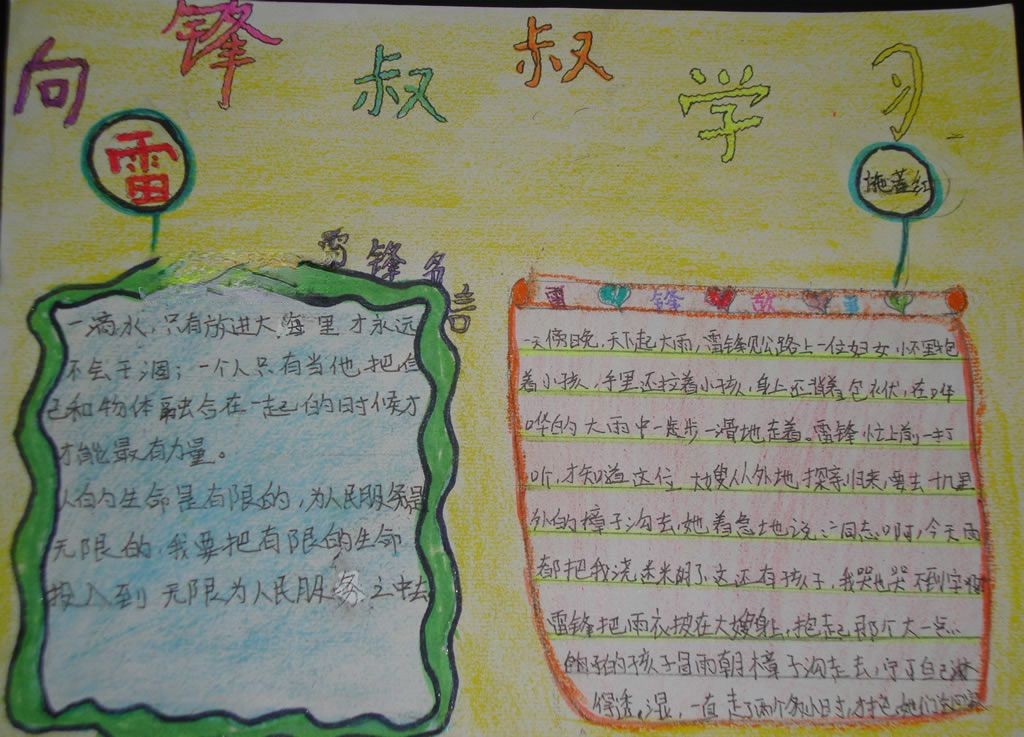 向雷锋叔叔学习
施盖红
雷锋名言
一滴水，只有放进大海里才永远
不会干涸；一个人只有当他把自
己和物体融合在一起的时候才
才能最有力量。
人的生命是有限的，为人民服务是
无限的，我要把有限的生命
投入到无限为人民服务之中去
雷锋故
一天傍晚，天下起大雨，雷锋见公路上一位妇女，怀里抱
着小孩，手里还拉着小孩，身上还背着包衣伏，在哗
哗的大雨中一走步一滑地走着。雷锋忙上前一打
听，才知道这位大嫂从外地探亲归来，要去十几里
外的樟子沟去她着急地说：同志啊，今天雨
都把我浇迷糊了这还有孩子，我哭也哭不到家呀
雷锋把雨衣披在大嫂身上，抱起那个大一点
的孩子冒雨朝樟子沟走去，宁可自己
得透湿，一直走了两个多小时，才把她们送回家